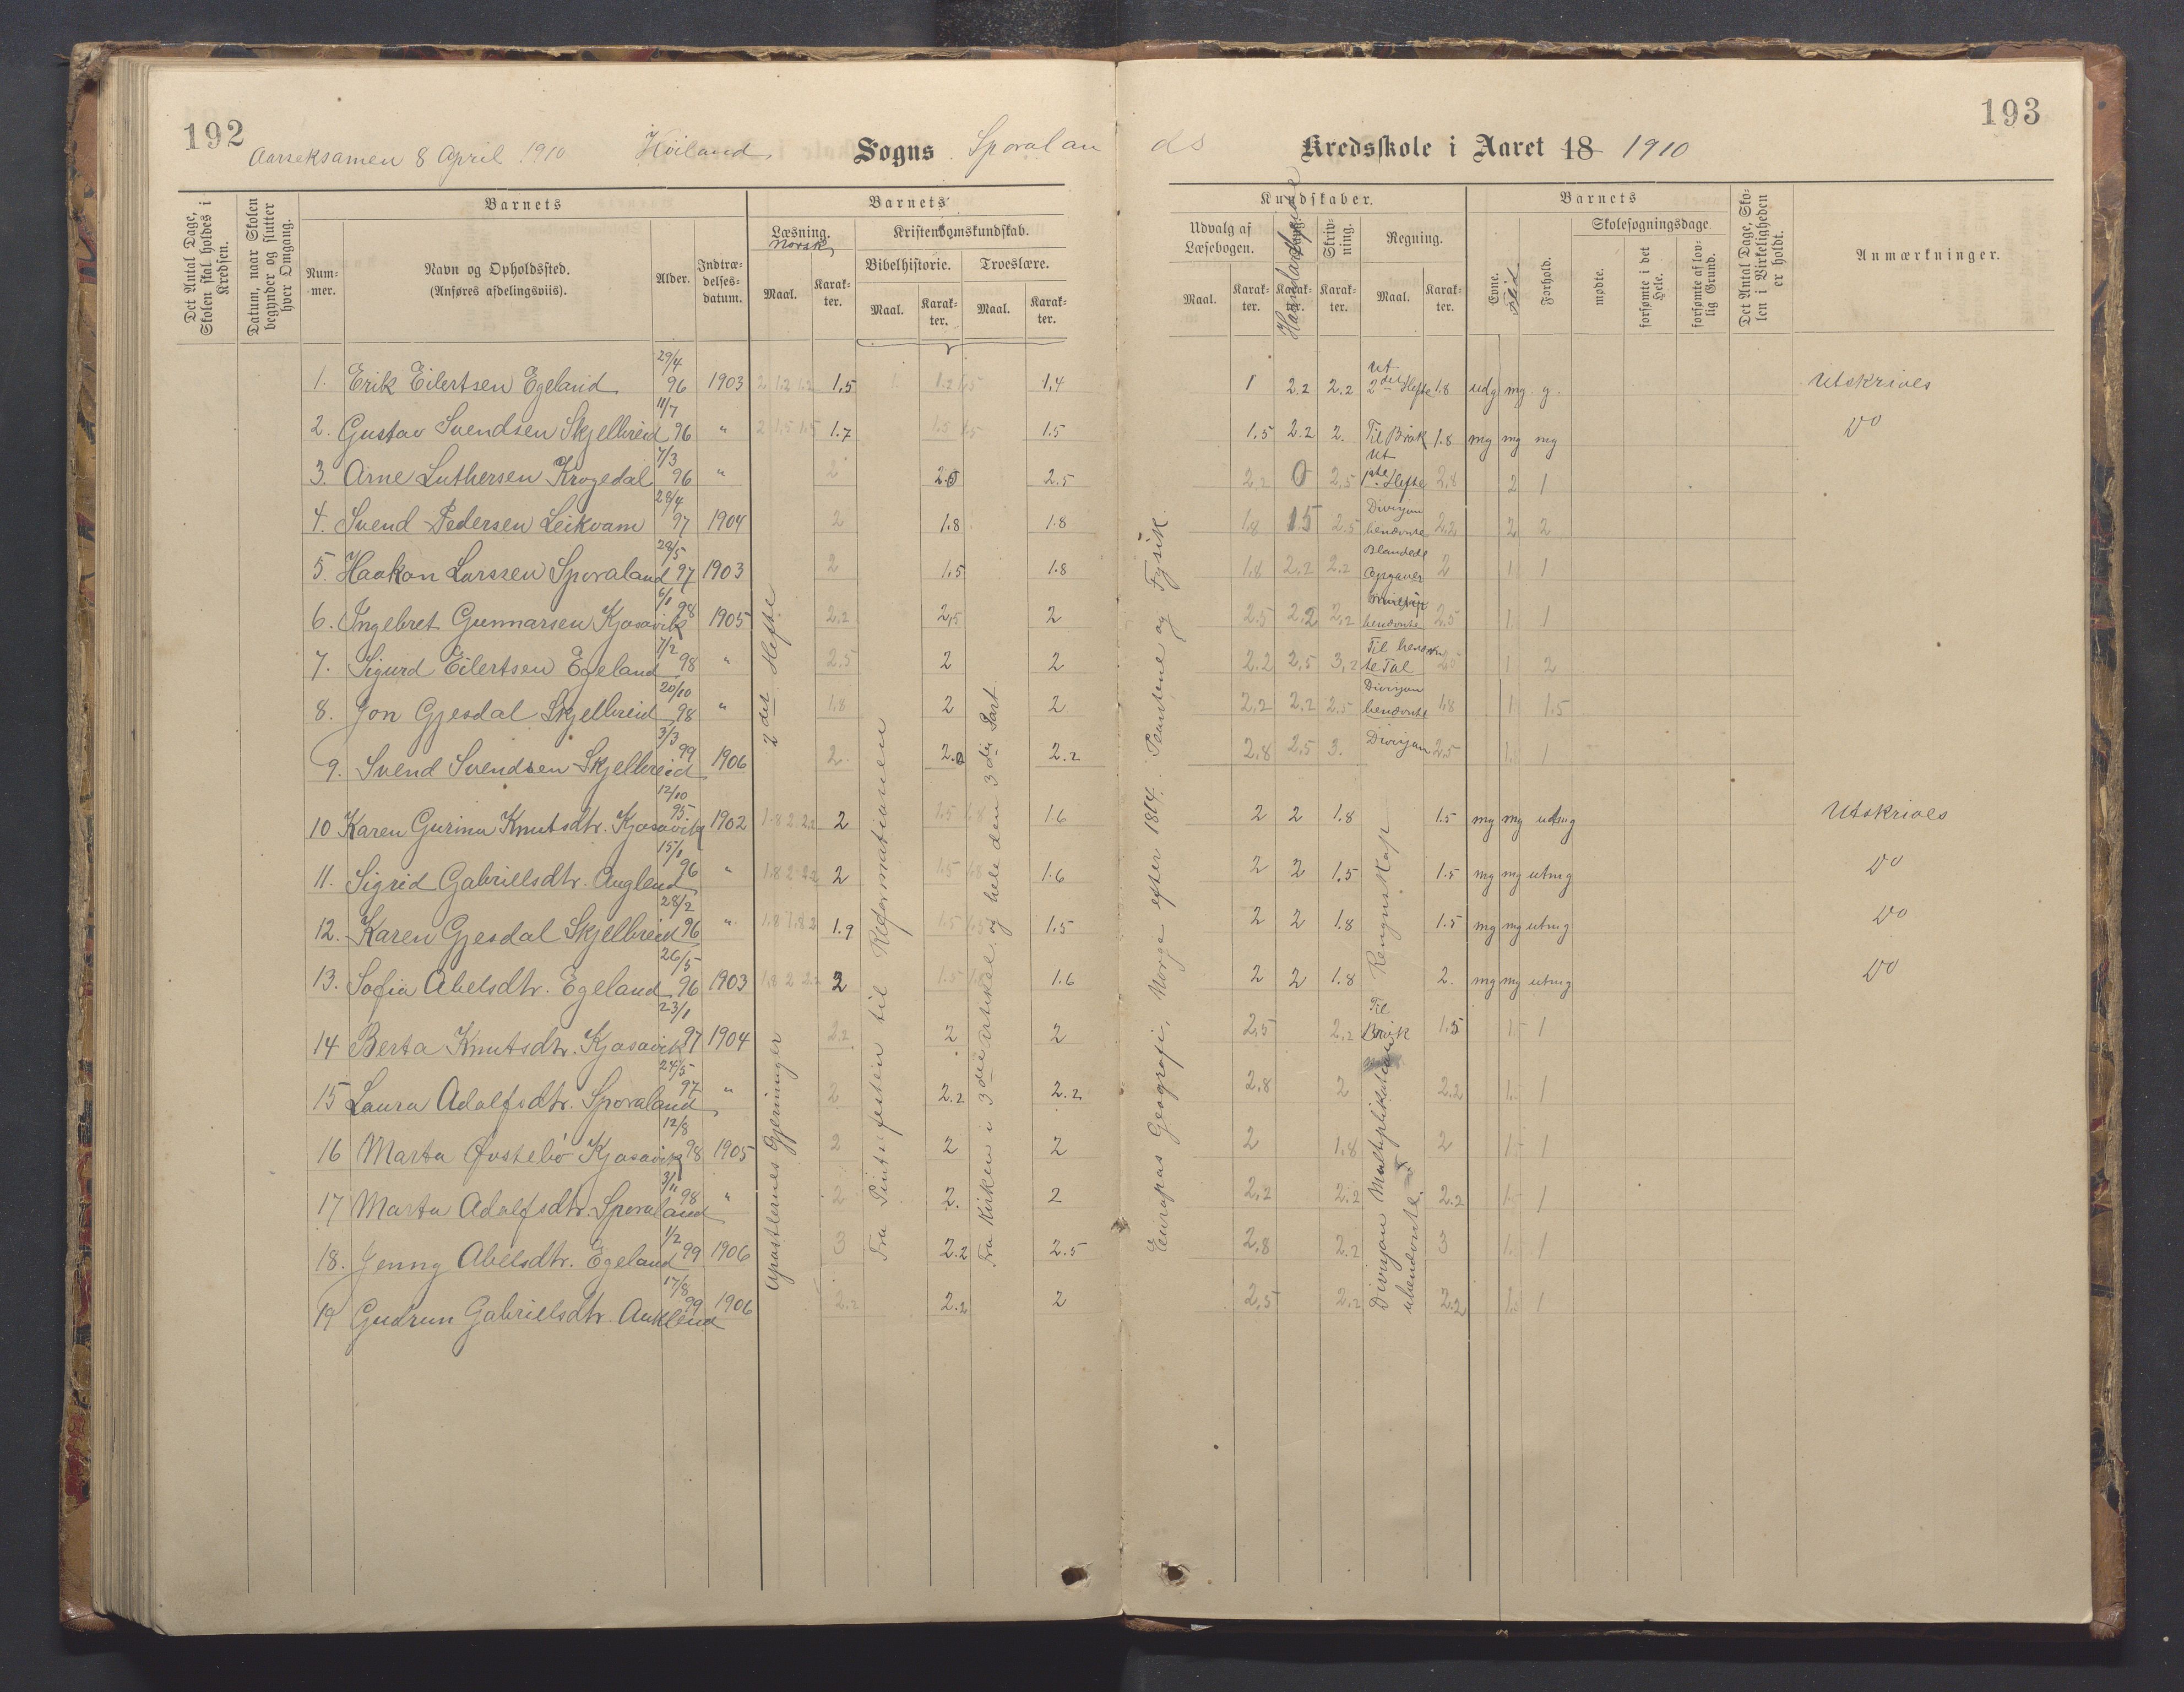 192
193
Aarseksamen 8 April 1910 Høiland Sogns Sporalan ds Kredsskole i Aaret 18 1910
Det Antal Dage, Skolen skal holdes i Kredsen.
Datum, naar Skolen begynder og slutter hver Omgang.
Barnets
Num-mer.
Navn og Opholdssted.
(Anføres afdelingsviis).
Alder.
Indtræ-delses-datum.
Barnets
Læsning.
Norsk
Maal.
Karak-ter.
Kristendomskundskab.
Bibelhistorie.
Maal.
Karak-ter.
Troeslære.
Maal.
Karak-ter.
Kundskaber.
Udvalg af Læsebogen.
Maal.
Karak-ter.
Sang.
Haandarbeide
Karak-ter.
Skriv-ning.
Karak-ter.
Regning.
Maal.
Karak-ter.
Barnets
Evne.
Flid
Forhold.
Skolesøgningsdage.
mødte.
forsømte i det Hele.
forsømte af lov-lig Grund.
Det Antal Dage, Sko-len i Virkeligheden er holdt.
Anmærkninger.
1. Erik Eilertsen Egeland 29/4 96 1903 2 1.2 1.2 1,5 1. 1.2 1.5 1,4 1 2.2 2.2 Ut 2det Hefte 1.8 udg mg g. Utskrives
2. Gustav Svendsen Skjelbreid 11/7 96 " 2 1.5 1.5 1.7 1.5 1.5 1.5 1.5 2.2 2. Til Brøk 1.8 mg mg mg Do
3. Arne Luthersen Krogedal 7/3 96 " 2 2.0 2.5 2,2 0 2,5 Ut 1ste Hefte 2,8 2 1
4. Svend Pedersen Leikvam 28/4 97 1904 2 1.8 1.8 1.8 1.5 2.5 Divisjon benævnte 2.2 2 2
5. Haakon Larssen Sporaland 28/5 97 1903 2 1.5 1.8 1.8 2.2 2.2 Blandede Opgaver 2 1 1
6. Ingebret Gunnarsen Kjosavik 6/1 98 1905 2.2 2,5 2 2.5 2.2 2,2 benævnte 2.5 1 1
7. Sigurd Eilertsen Egeland 7/2 98 " 2.5 2 2 2.2 2,5 3,2 Til benævnte Tal 2.5 1 2
8. Jon Gjesdal Skjelbreid 20/10 98 " 1.8 2 2 2,2 2,2 2.5 Divisjon benævnte 1.8 1 1.5
9. Svend Svendsen Skjelbreid 3/3 99 1906 2. 2.0 2.2 2,8 2.5 3. Divisjon 2.5 1. 1
10 Karen Gurina Knutsdtr. Kjosavik 12/10 95. 1902 1.8 2 2.2 2 1.5 1.8 1.6 2 2 1.8 1.5 mg mg utmg Utskrives
11. Sigrid Gabrielsdtr. Auglend 15/1 96 " 1.8 2 2.2 2 1.5 1.8 1.6 2 2 1.5 1.5 mg mg utmg Do
12. Karen Gjesdal Skjelbreid 28/2 96 " 1.8 1.8 2 1.9 1.5 1.5 2 2 1.8 1.5 mg mg utmg Do
13. Sofia Abelsdtr. Egeland 26/5 96 1903 1.8 2 2.2 2 1.5 1.8 1.6 2 2 1.8 2. mg mg utmg Do
14 Berta Knutsdtr. Kjosavik 23/1 97 1904 2.2 2 2 2,5 2,2 Til Brøk 1.5 1.5 1
15 Laura Adolfsdtr. Sporaland 24/5 97 " 2 2.2 2.2 2.8 2 2.2 1.5 1
16 Marta Østebø Kjosavik 12/8 98 1905 2 2 2 2 1.8 2 1.5 1
17 Marta Adolfsdtr. Sporaland 3/11 98 " 2 2. 2 2,2 2.2 2.2 1.5 1
18. Jenny Abelsdtr. Egeland 1/2 99 1906 3 2.2 2.5 2.8 2.2 3 1.5 1
19 Gudrun Gabrielsdtr. Auklend 17/8 99 1906 2.2 2.2 2 2.5 2.2 2.2 1.5 1
2 det Hefte
Apostlernes Gjerninger
Fra Pintsefesten til Reformationen
Fra Kirken i 3die Artikel, og hele den 3die Part.
Europas Geografi, Norge efter 1814. Planterne og Fysik.
Regnskap
Divisjon Multiplikation ubenævnte.